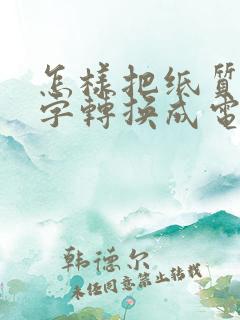 怎樣把纸質
字轉换成電
韩德尔
未经同意禁止转载